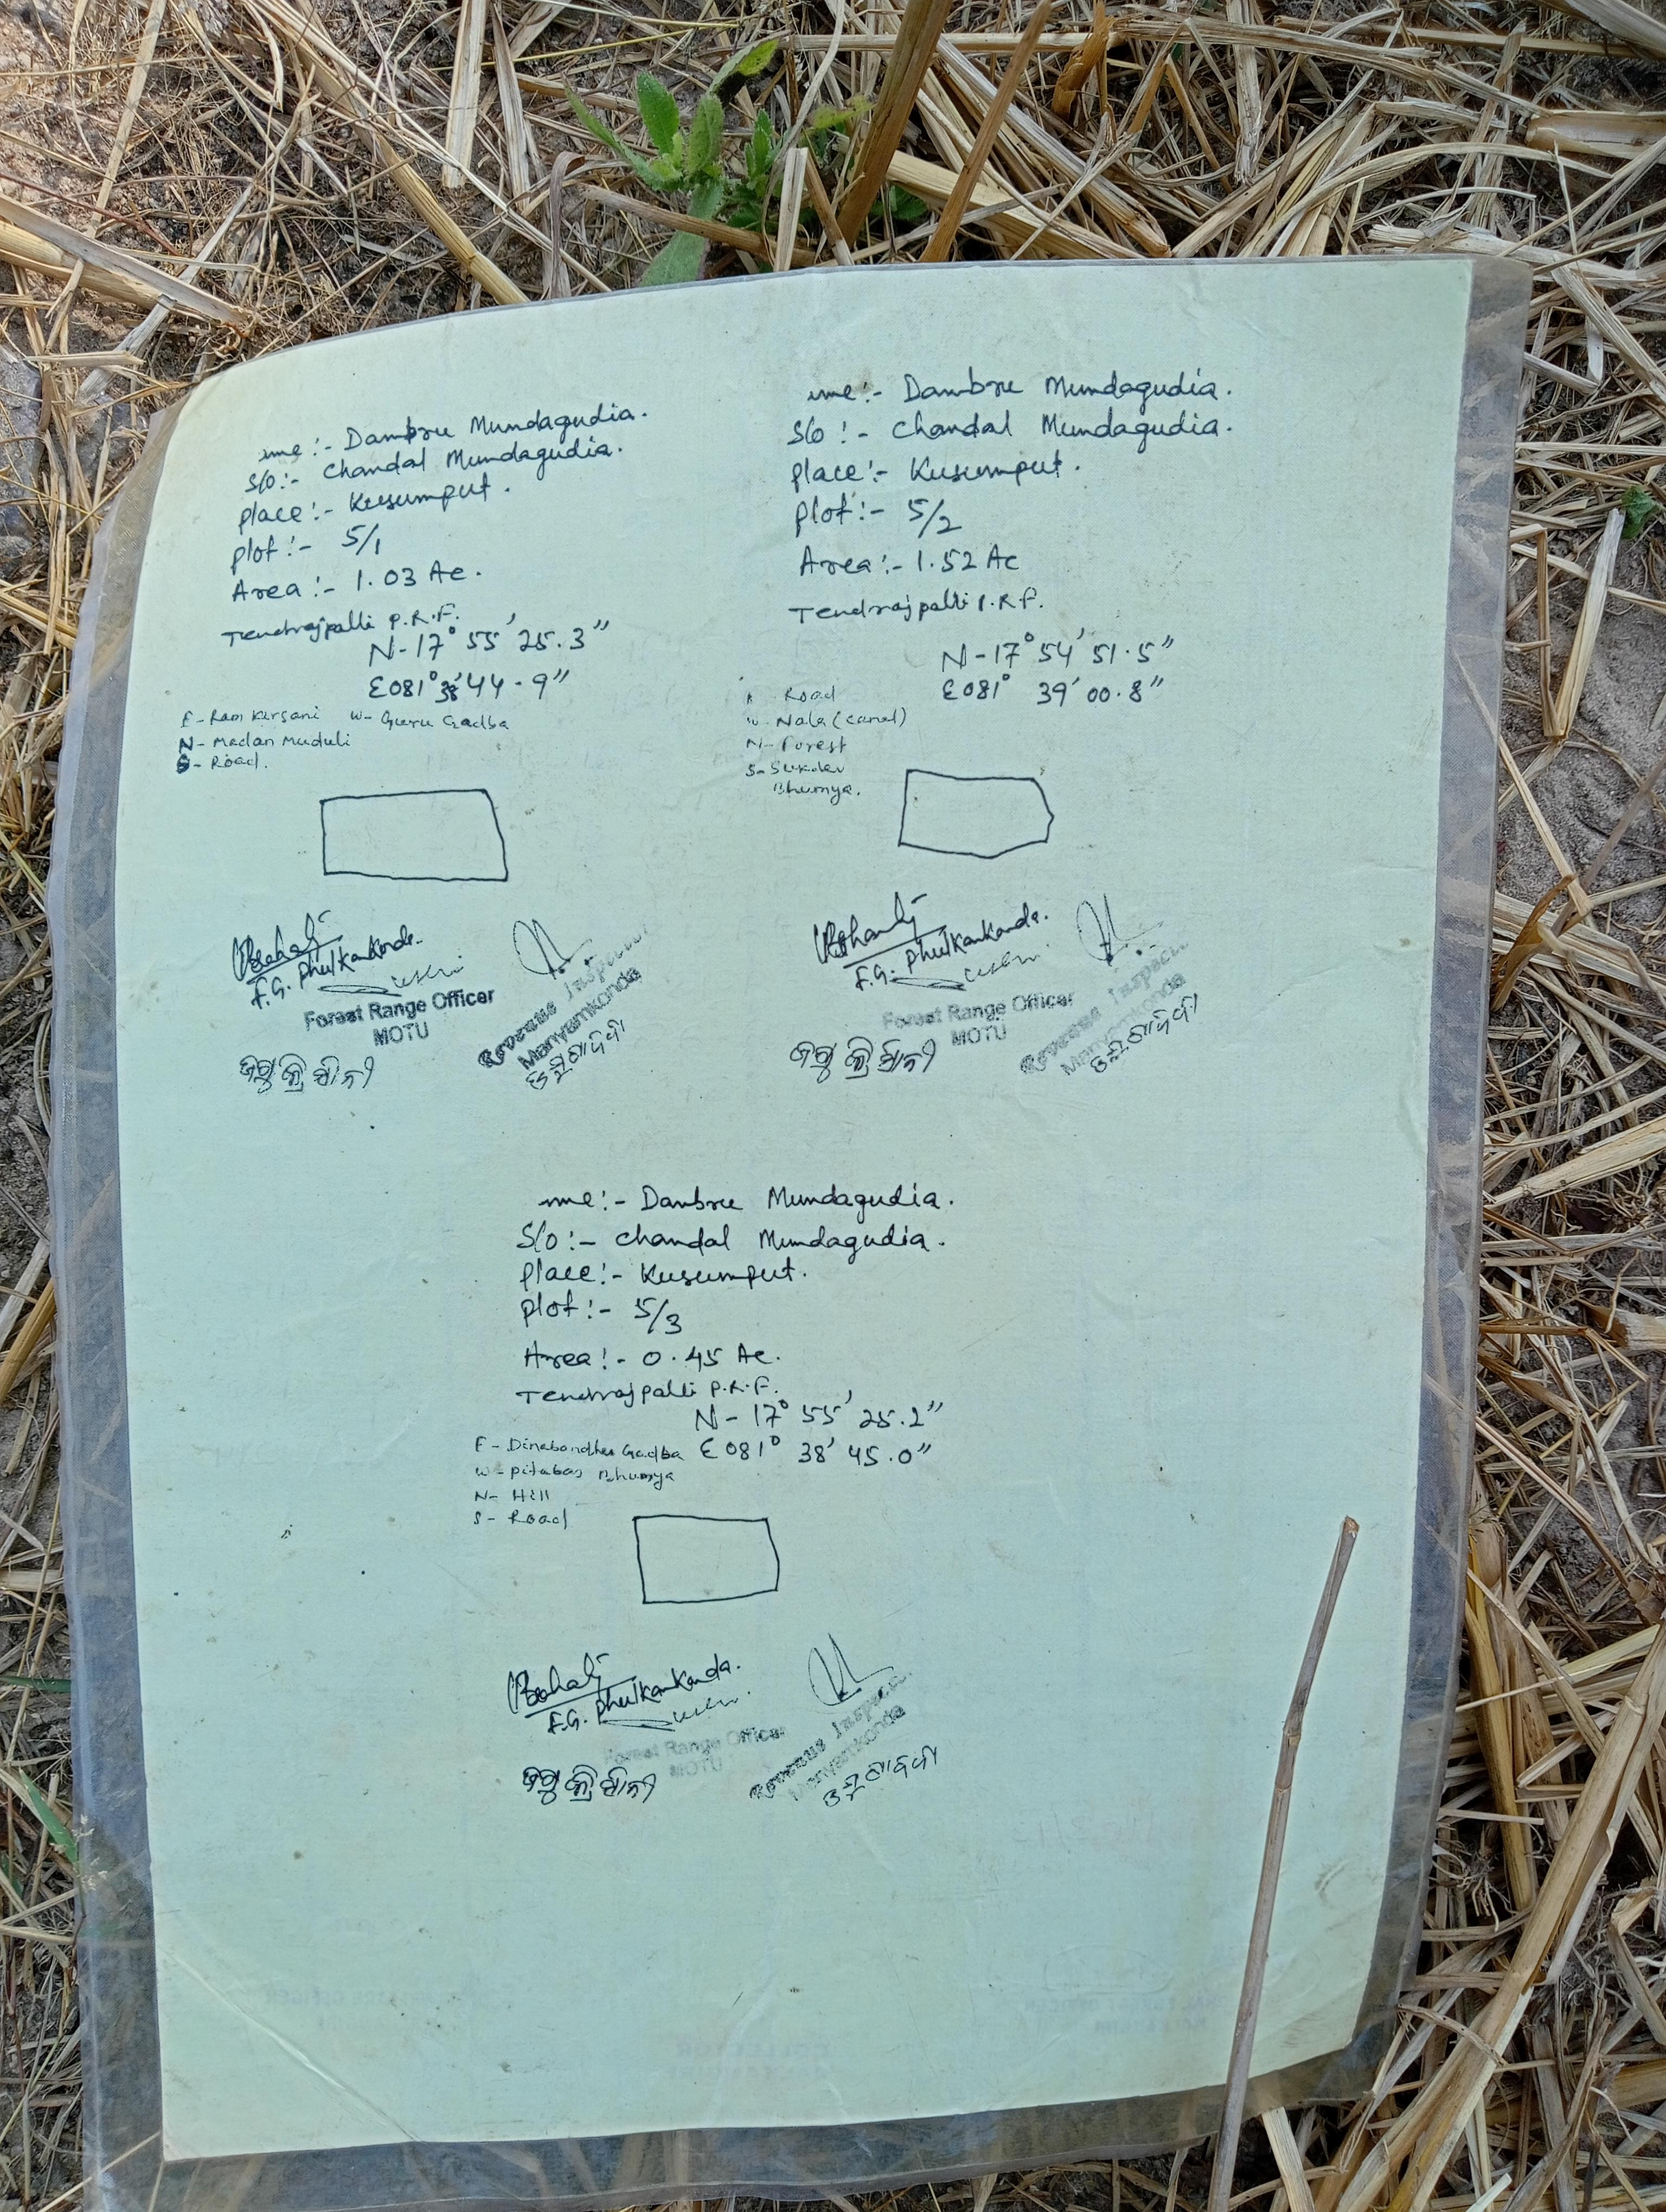 ame:- Dambru Mundagudia.
S/o:- Chandal Mundagudia.
Place:- Kusumput.
Plot:- 5/1
Area:- 1.03 Ac.
Tendrajpalli P.R.F.
N-17° 55' 25.3"
E081° 38' 44.9"
E- Ram Kirsani W- Guru Gadba
N- Madan Muduli
S- Road.
F.G. Phulkankonda.
Forest Range Officer
MOTU
Revenue Inspector
Manyamkonda
ame:- Dambru Mundagudia.
S/o:- Chandal Mundagudia.
Place:- Kusumput.
Plot:- 5/2
Area:- 1.52 Ac
Tendrajpalli P.R.F.
N-17° 54' 51.5"
E081° 39' 00.8"
Road
W- Nala (canal)
N- Forest
S- Sukdev
Bhumya.
F.G. Phulkankonda.
Forest Range Officer
MOTU
Revenue Inspector
Manyamkonda
ame:- Dambru Mundagudia.
S/o:- Chandal Mundagudia.
Place:- Kusumput.
Plot:- 5/3
Area:- 0.45 Ac.
Tendrajpalli P.R.F.
N- 17° 55' 25.2"
E081° 38' 45.0"
E- Dinabandhu Gadba
W- Pitabas Bhumya
N- Hill
S- Road
F.G. Phulkankonda.
Forest Range Officer
MOTU
Revenue Inspector
Manyamkonda